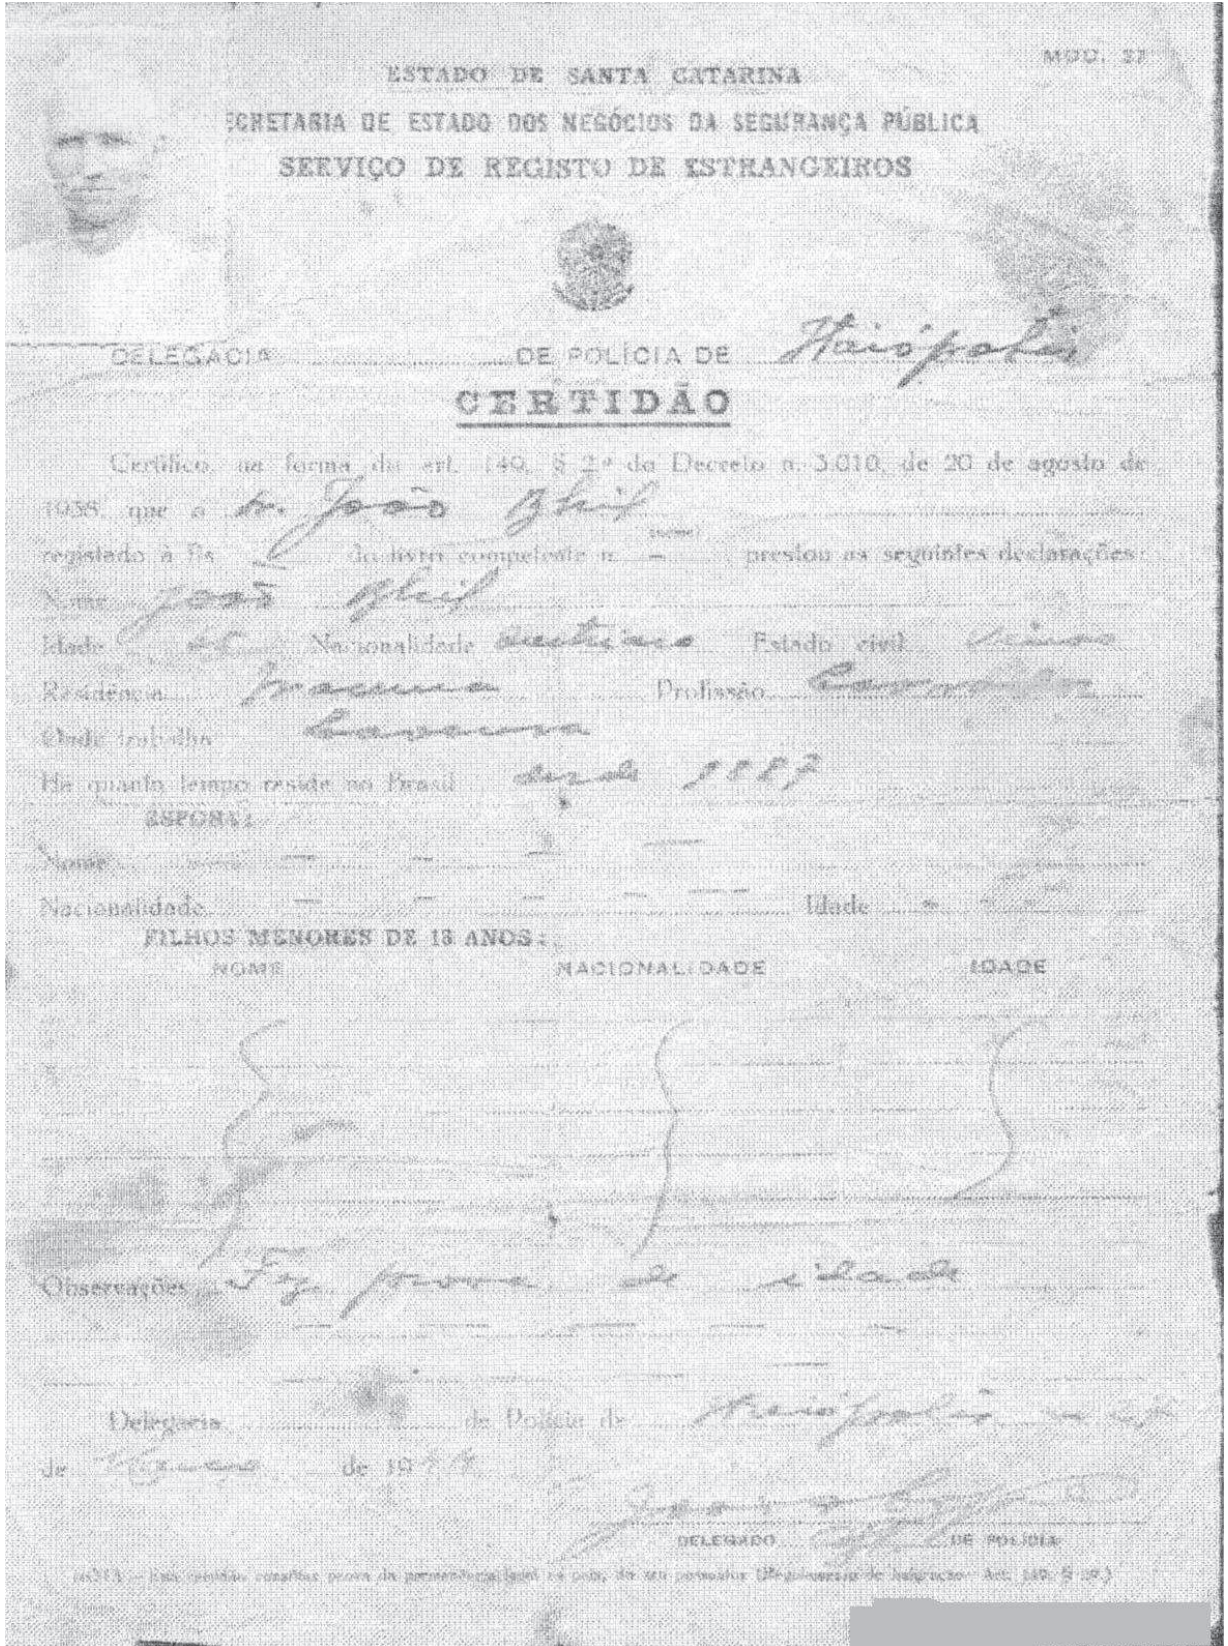 MOD. 37
ESTADO DE SANTA CATARINA
ECRETARIA DE ESTADO DOS NEGÓCIOS DA SEGURANÇA PÚBLICA
SERVIÇO DE REGISTO DE ESTRANGEIROS
DELEGACIA DE POLÍCIA DE Itaiópolis
CERTIDÃO
Certifico, na forma do art. 149, § 2º do Decreto n. 3.010, de 20 de agosto de
1938, que o sr. João
registado à fls do livro competente n. — prestou as seguintes declarações:
Nome João
Idade Nacionalidade Estado civil
Residência Iracema Profissão Lavrador
Onde trabalha Lavoura
Há quanto tempo reside no Brasil desde 1887
ESPOSA:
Nome — — — —
Nacionalidade — — — — — Idade - - -
FILHOS MENORES DE 18 ANOS:
NOME NACIONALIDADE IDADE
Observações Fez prova de idade
Delegacia de Polícia de Itaiópolis, em
de de 19
DELEGADO DE POLÍCIA
NOTA — Esta certidão constitue prova da permanência legal no país, do seu possuidor (Regulamento de Imigração Art. 149, §